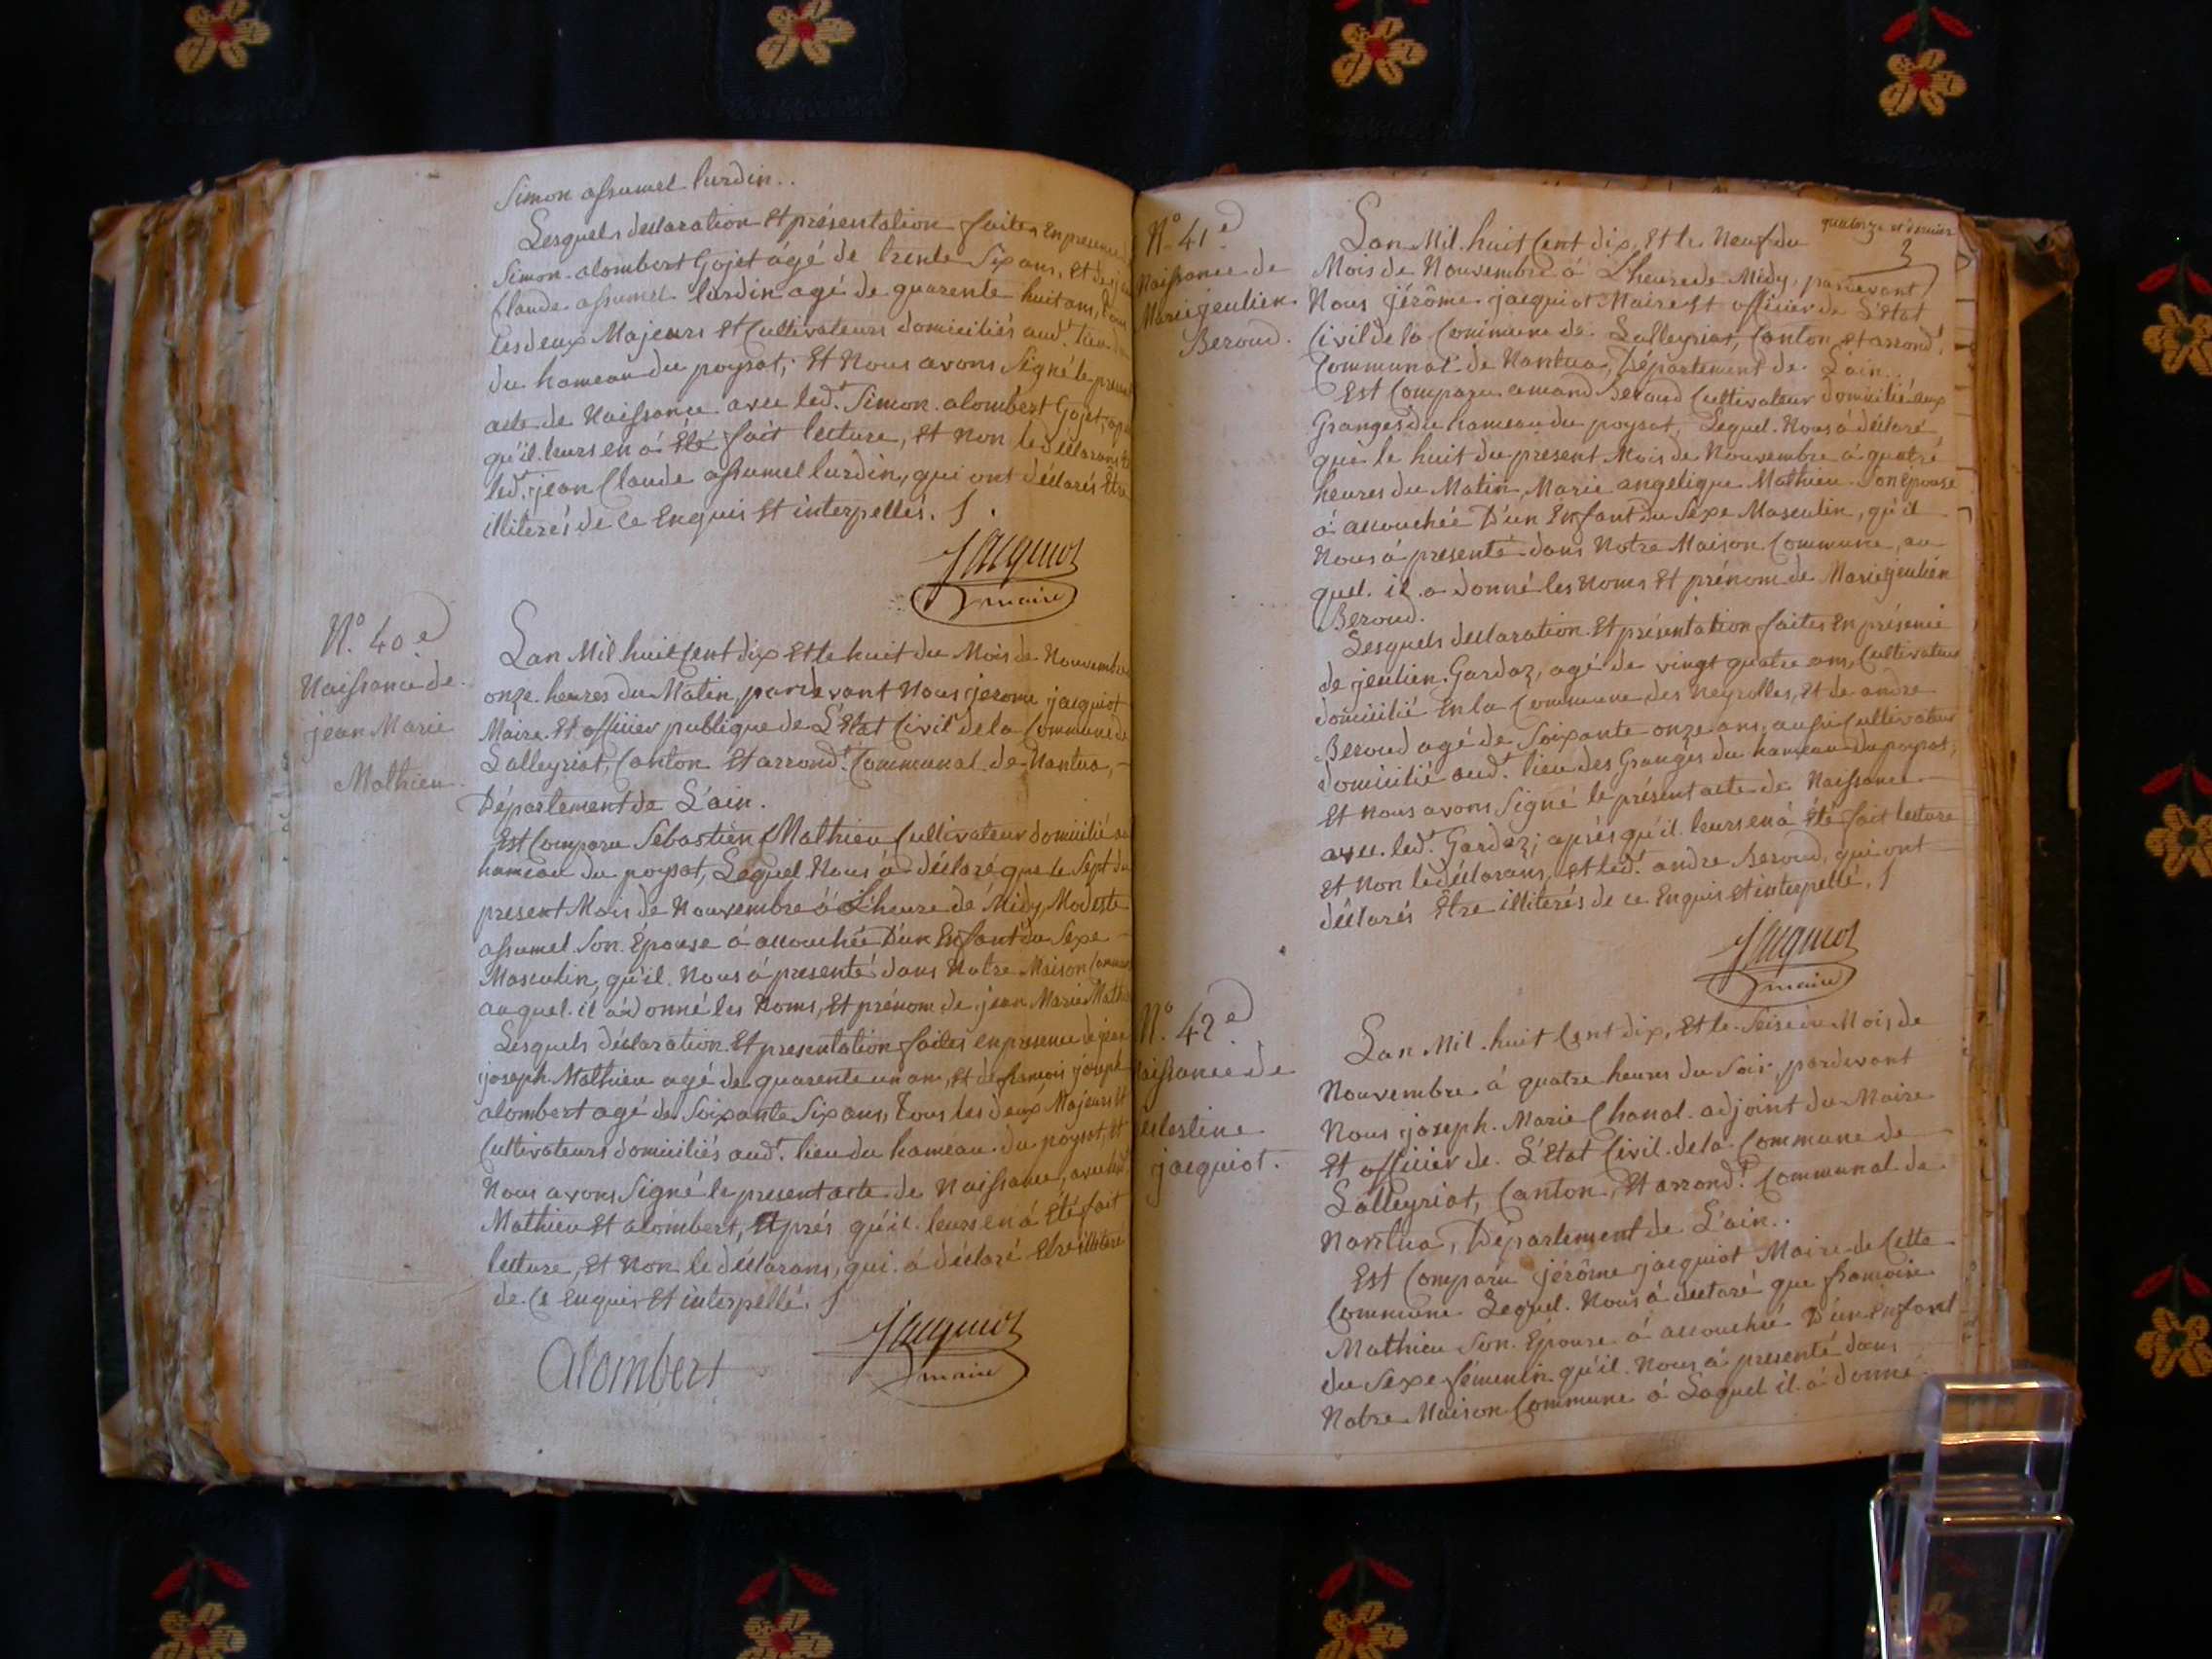 Simon assumel lurdin..
Lesquels declaration Et présentation faites En presence
Simon alombert Gojet âgé de trente Six ans, Et de
Claude assumel lurdin agé de quarente huit ans, tous
les deux Majeurs et Cultivateurs domiciliés aud.t lieu
du hameau du poysat; Et Nous avons Signé le present
acte de Naissance avec led.t Simon alombert Gojet,
qu'il leurs en á Eté fait lecture, et Non le déclarans
led.t jean Claude assumel lurdin, qui ont déclarés Être
illiterés de ce Enquis Et interpellés.
Jacquiot
maire
N.o 40.e
Naissance de
jean Marie
Mathieu.
Lan Mil huit Cent dix Et le huit du Mois de Nouvembre
onze heures du Matin, pardevant Nous jerome jacquiot
Maire Et officier publique de L'Etat Civil de la Commune de
Lalleyriat, Canton Et arrond.t Communal de Nantua,
Département de L'ain.
Est Comparu Sébastien Mathieu Cultivateur domicilié au
hameau du poysat, Lequel Nous á déclaré que le Sept du
present Mois de Nouvembre á L'heure de Midy, Modeste
assumel Son Épouse á accouchée D'un Enfant du Sexe
Masculin, qu'il Nous á presenté dans Notre Maison Commune
auquel il a donné les Noms, Et prénom de jean Marie Mathieu
Lesquels déclaration Et presentation faites en presence de jean
joseph Mathieu agé de quarente un ans, et de francois joseph
alombert agé de Soixante Six ans, tous les deux Majeurs Et
Cultivateurs domiciliés aud.t lieu du hameau du poysat, Et
Nous avons Signé le present acte de Naissance, avec led.t
Mathieu Et alombert, Après qu'il leurs en á Eté fait
lecture, Et Non le déclarans, qui á déclaré Etre illiteré
de Ce Enquis Et interpellé.
Alombert
Jacquiot
maire
quatorze et dernier
N.o 41.e
Naissance de
Marie jeulien
Beroud.
Lan Mil huit Cent dix, Et le Neuf du
Mois de Nouvembre á L'heure de Midy, pardevant
Nous jérôme jacquiot Maire Et officier de L'Etat
Civil de la Commune de Lalleyriat, Canton, Et arrond.t
Communal de Nantua, Département de L'ain..
Est Comparu amand Beroud Cultivateur domicilié aux
Granges du hameau du poysat, Lequel Nous á déclaré
que le huit du present Mois de Nouvembre á quatre
heures du Matin, Marie angelique Mathieu Son Épouse
á accouchée D'un Enfant du Sexe Masculin, qu'il
Nous á presenté dans Notre Maison Commune, au
quel il a donné les Noms Et prénom de Marie jeulien
Beroud.
Lesquels declaration Et présentation faites En présence
de jeulien Gardaz, agé de vingt quatre ans, Cultivateur
domicilié En la Commune des Neyrolles, Et de andre
Beroud agé de Soixante onze ans, aussi Cultivateur
domicilié aud.t lieu des Granges du hameau du poysat,
Et Nous avons Signé le présent acte de Naissance
avec led.t Gardaz; aprés qu'il leurs en á Eté fait lecture
et Non le déclarans, et led.t andre Beroud, qui ont
déclarés Être illiterés de ce Enquis Et interpellé.
Jacquiot
maire
N.o 42.e
Naissance de
Celestine
jacquiot.
Lan Mil huit Cent dix, Et le Seise du Mois de
Nouvembre á quatre heures du Soir, pardevant
Nous joseph Marie Chanal adjoint du Maire
Et officier de L'Etat Civil de la Commune de
Lalleyriat, Canton, Et arrond.t Communal de
Nantua, Département de L'ain..
Est Comparu jérôme jacquiot Maire de Cette
Commune Lequel Nous á declaré que francoise
Mathieu Son Épouse á accouchée D'un Enfant
du Sexe féminin qu'il Nous á presenté dans
Notre Maison Commune á Laquel il á donné